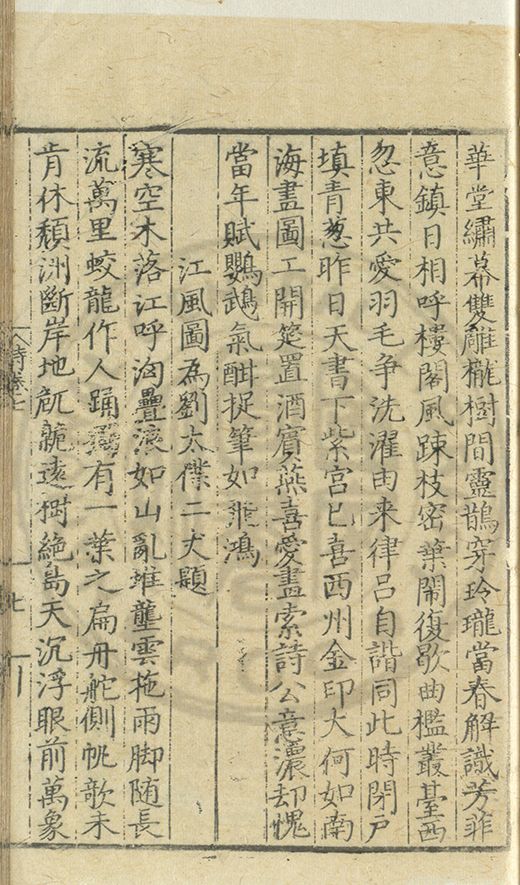 華堂繡幕雙雕櫳樹間靈鵲穿玲瓏當春解識芳菲
意鎮日相呼樓閣風踈枝密葉鬧復歇曲檻叢臺西
忽東共愛羽毛争洗濯由来律吕自諧同此時閉户
填青葱昨日天書下紫宫巳喜西州金印大何如南
海畫圖工開筵置酒賓燕喜愛畫索詩公意濃却愧
當年賦鸚鵡氣酣捉筆如飛鴻
江風圖為劉太僕二犬題
寒空木落江呼洶疊浪如山亂堆壟雲拖雨脚随長
流萬里蛟龍作人踊有一葉之扁舟舵側帆歌未
肯休頽洲斷岸地䑃遠樹絶島天沉浮眼前萬象
詩卷七
七